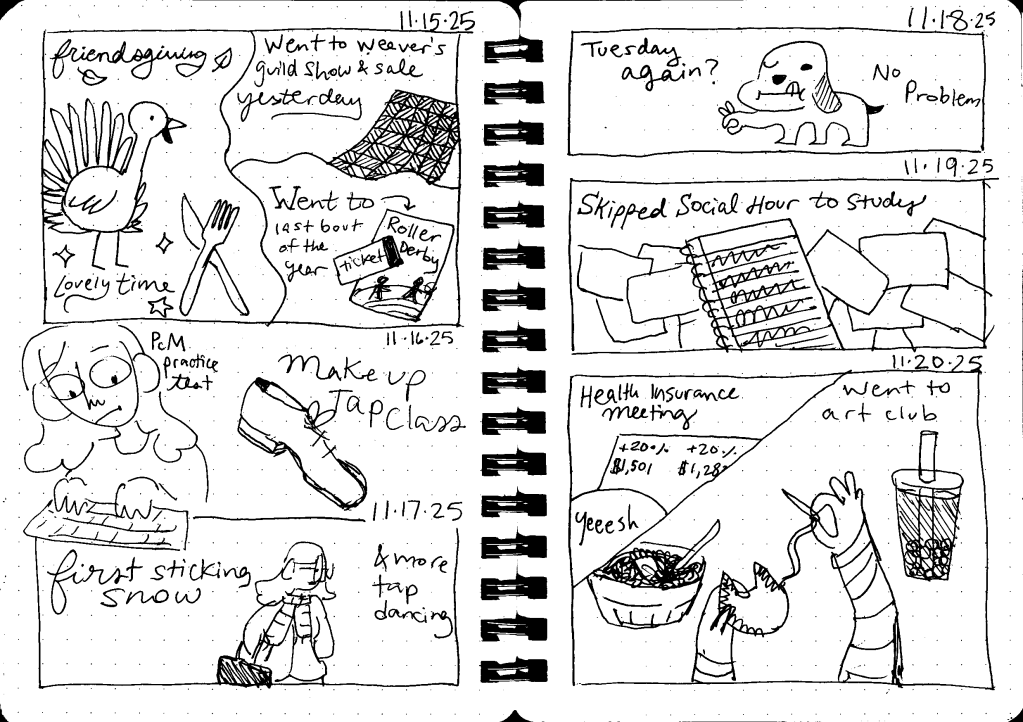 11.15.25
friendsgiving
Lovely time
Went to Weaver's
guild show & sale
yesterday
Went to
last bout
of the
year
Roller
Derby
ticket
11.16.25
PCM
practice
test
Make up
Tap Class
11.17.25
first sticking
snow
& more
tap
dancing
11.18.25
Tuesday
again?
No
Problem
11.19.25
Skipped Social Hour to Study
11.20.25
Health Insurance
meeting
+20% +20%
$1,501
Yeeesh
Went to
art club